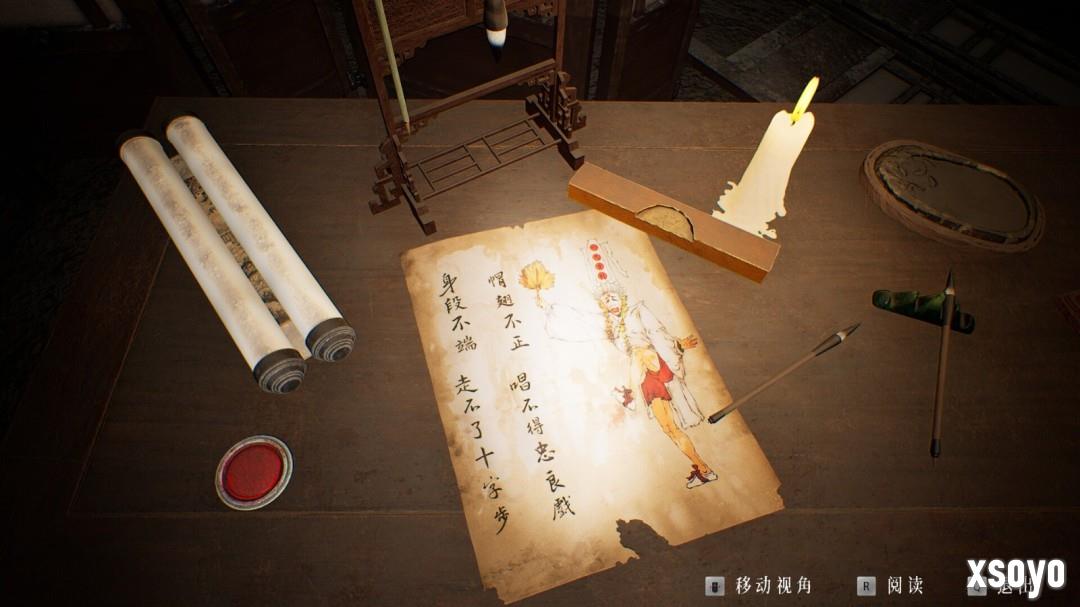 帽翅不正 唱不得忠良戲
身段不端 走不了十字步
移动视角
R 阅读
xsoyo